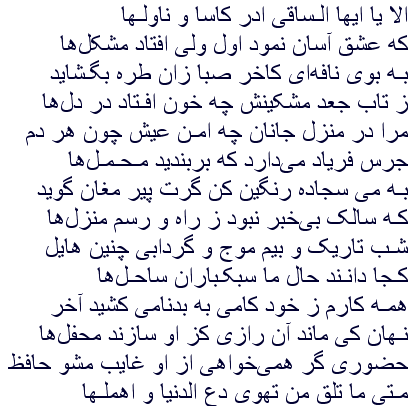 الا یا ایها الـساقی ادر کاسا و ناولـها
که عشق آسان نمود اول ولی افتاد مشکل‌ها
بـه بوی نافه‌ای کاخر صبا زان طره بگـشاید
ز تاب جعد مشکینش چه خون افـتاد در دل‌ها
مرا در منزل جانان چه امـن عیش چون هر دم
جرس فریاد می‌دارد که بربندید مـحـمـل‌ها
بـه می سجاده رنگین کن گرت پیر مغان گوید
کـه سالک بی‌خبر نبود ز راه و رسم منزل‌ها
شـب تاریک و بیم موج و گردابی چنین هایل
کـجا دانـند حال ما سبکـباران ساحـل‌ها
همـه کارم ز خود کامی به بدنامی کشید آخر
نـهان کی ماند آن رازی کز او سازند محفل‌ها
حضوری گر همی‌خواهی از او غایب مشو حافظ
مـتی ما تلق من تهوی دع الدنیا و اهملـها